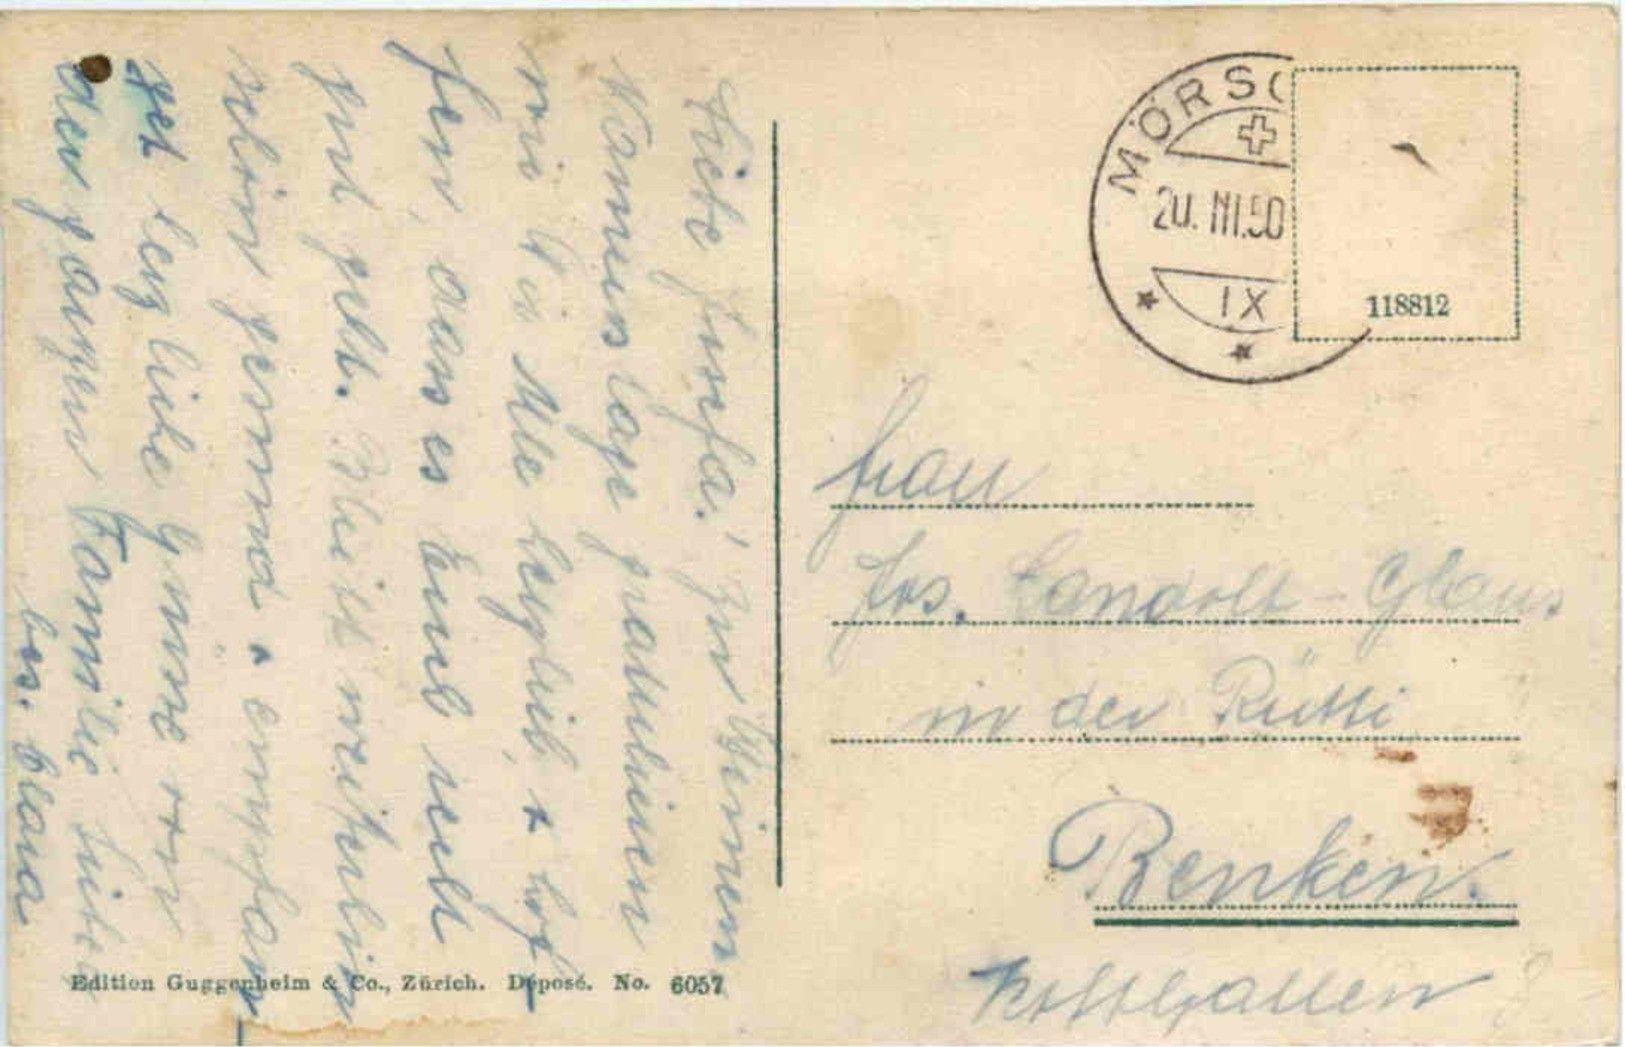 Liebe Josefa! Zu Deinem
Namenstage gratulieren
wir Dir Alle herzlich, + hof-
fen, dass es Euch recht
gut geht. Bleibt weiterhin
schön gesund + empfan-
get herzliche Grüsse von
der ganzen Familie
bes. Clara
Edition Guggenheim & Co., Zürich. Déposé. No. 6057
MÖRSC
20. III. 50
IX
118812
Frau
Jos. Landolt-Glaus
in der Rütti
Benken.
Kt. St. Gallen